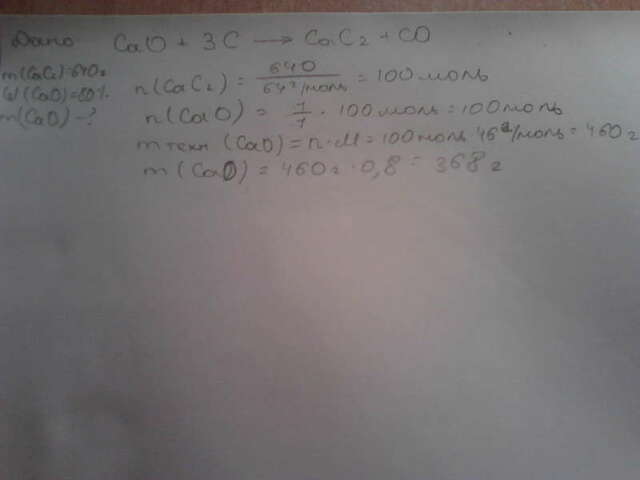 Дано CaO + 3C → CaC2 + CO
m(CaC2)=640г
W(CaO)=80%
m(CaO) - ?
n(CaC2) = 640 / 64г/моль = 100моль
n(CaO) = 1/1 · 100моль = 100моль
mтехн (CaO) = n·M = 100моль 46г/моль = 460г
m(CaO) = 460г · 0,8 = 368г